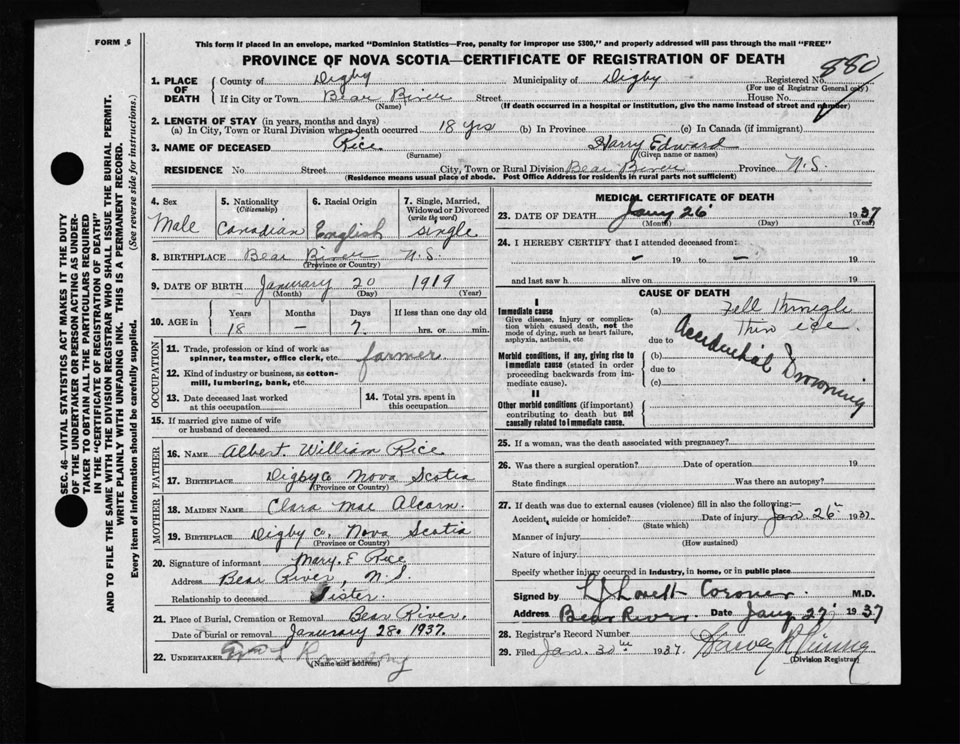 FORM 6
This form if placed in an envelope, marked "Dominion Statistics—Free, penalty for improper use $300," and properly addressed will pass through the mail "FREE"
PROVINCE OF NOVA SCOTIA—CERTIFICATE OF REGISTRATION OF DEATH
880
1. PLACE OF DEATH County of Digby Municipality of Digby Registered No.
(For use of Registrar General only)
If in City or Town Bear River Street House No.
(Name) (If death occurred in a hospital or institution, give the name instead of street and number)
2. LENGTH OF STAY (in years, months and days)
(a) In City, Town or Rural Division where death occurred 18 yrs (b) In Province (c) In Canada (if immigrant)
3. NAME OF DECEASED Rice Harry Edward
(Surname) (Given name or names)
RESIDENCE No. Street City, Town or Rural Division Bear River Province N.S.
(Residence means usual place of abode. Post Office Address for residents in rural parts not sufficient)
4. Sex Male
5. Nationality (Citizenship) Canadian
6. Racial Origin English
7. Single, Married, Widowed or Divorced (write the word) single
8. BIRTHPLACE Bear River N.S.
(Province or Country)
9. DATE OF BIRTH January 20 1919
(Month) (Day) (Year)
10. AGE in Years Months Days If less than one day old
18 — 7 hrs. or min.
OCCUPATION
11. Trade, profession or kind of work as spinner, teamster, office clerk, etc. farmer
12. Kind of industry or business, as cotton-mill, lumbering, bank, etc.
13. Date deceased last worked at this occupation
14. Total yrs. spent in this occupation
15. If married give name of wife or husband of deceased
FATHER
16. NAME Albert William Rice
17. BIRTHPLACE Digby Co Nova Scotia
(Province or Country)
MOTHER
18. MAIDEN NAME Clara Mae Alcorn.
19. BIRTHPLACE Digby Co. Nova Scotia
(Province or Country)
20. Signature of informant Mary. E Rice
Address Bear River, N.S.
Relationship to deceased Sister.
21. Place of Burial, Cremation or Removal Bear River.
Date of burial or removal January 28. 1937.
22. UNDERTAKER
(Name and address)
MEDICAL CERTIFICATE OF DEATH
23. DATE OF DEATH Jany 26 1937
(Month) (Day) (Year)
24. I HEREBY CERTIFY that I attended deceased from:
— 19 to — 19
and last saw h alive on 19
CAUSE OF DEATH
I
Immediate cause
Give disease, injury or complication which caused death, not the mode of dying, such as heart failure, asphyxia, asthenia, etc
(a) Fell through thin ice.
due to
Accidental Drowning
Morbid conditions, if any, giving rise to immediate cause (stated in order proceeding backwards from immediate cause).
(b)
due to
(c)
II
Other morbid conditions (if important) contributing to death but not causally related to immediate cause.
25. If a woman, was the death associated with pregnancy?
26. Was there a surgical operation? Date of operation 19
State findings Was there an autopsy?
27. If death was due to external causes (violence) fill in also the following:
Accident, suicide or homicide? Date of injury Jan. 26th 1937.
(State which)
Manner of injury
(How sustained)
Nature of injury
Specify whether injury occurred in industry, in home, or in public place
Signed by L J Lovett Coroner. M.D.
Address Bear River. Date Jany 27 1937
28. Registrar's Record Number
29. Filed Jan. 30th 1937.
(Division Registrar)
SEC. 46—VITAL STATISTICS ACT MAKES IT THE DUTY
OF THE UNDERTAKER OR PERSON ACTING AS UNDER-
TAKER TO OBTAIN ALL THE PARTICULARS REQUIRED
IN THE "CERTIFICATE OF REGISTRATION OF DEATH"
AND TO FILE THE SAME WITH THE DIVISION REGISTRAR WHO SHALL ISSUE THE BURIAL PERMIT.
WRITE PLAINLY WITH UNFADING INK. THIS IS A PERMANENT RECORD.
Every item of information should be carefully supplied. (See reverse side for instructions.)